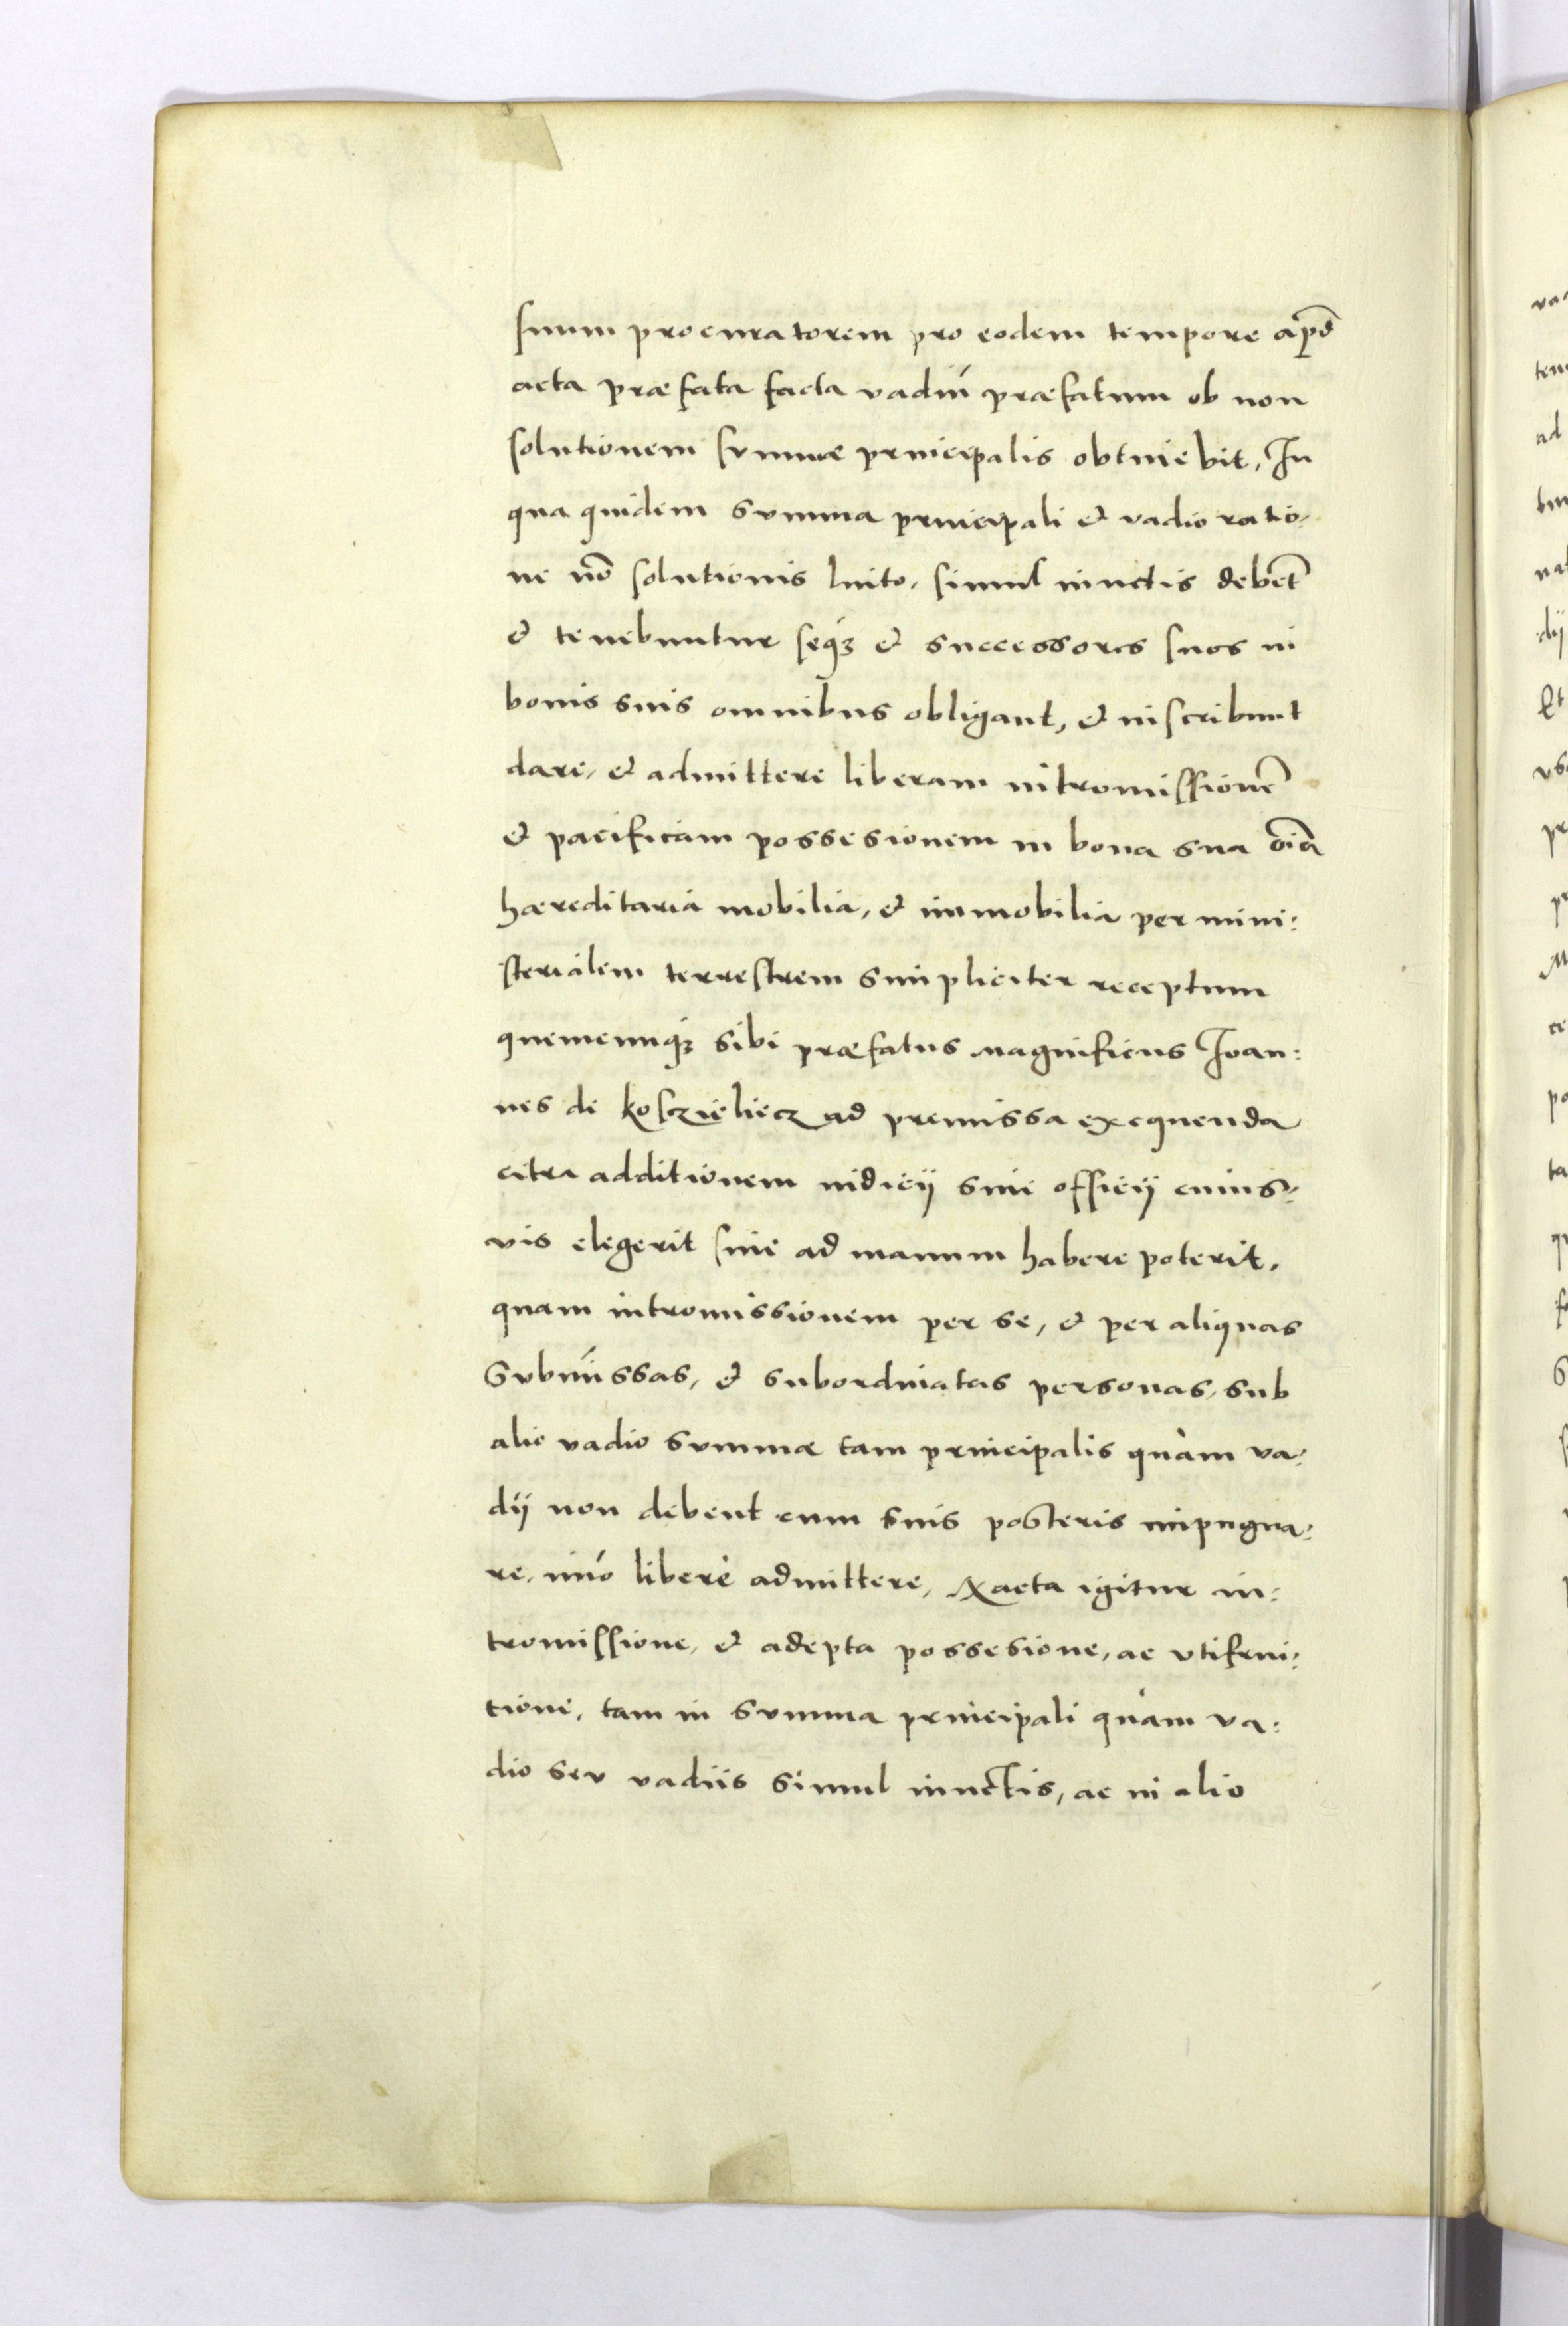 suum procuratorem pro eodem tempore apd̃
acta præfata facta vadiũ præfatum ob non
solutionem summæ principalis obtinebit, In
qua quidem summa principali et vadio ratio-
ne nõ solutionis luito, simul iunctis debẽt
et tenebuntur seqȝ et successores suos in
bonis suis omnibus obligant, et inscribunt
dare, et admittere liberam intromissionẽ
et pacificam possesionem in bona sua oĩa
hæreditaria mobilia, et immobilia per mini:
sterialem terrestrem simpliciter receptum
quemcunqȝ sibi præfatus magnificus Ioan:
nes de kosczieliecz ad premissa exequenda
citra additionem iudicij siue officij cuius-
vis elegerit siue ad manum habere poterit,
quam intromissionem per se, et per aliquas
submissas, et subordinatas personas, sub
alio vadio summæ tam principalis quàm va:
dij non debent cum suis posteris impugna:
re, imó liberè admittere, Exacta igitur in:
tromissione, et adepta possesione, ac vtifrui:
tione, tam in summa principali quàm va:
dio seu vadiis simul iunctis, ac in alio